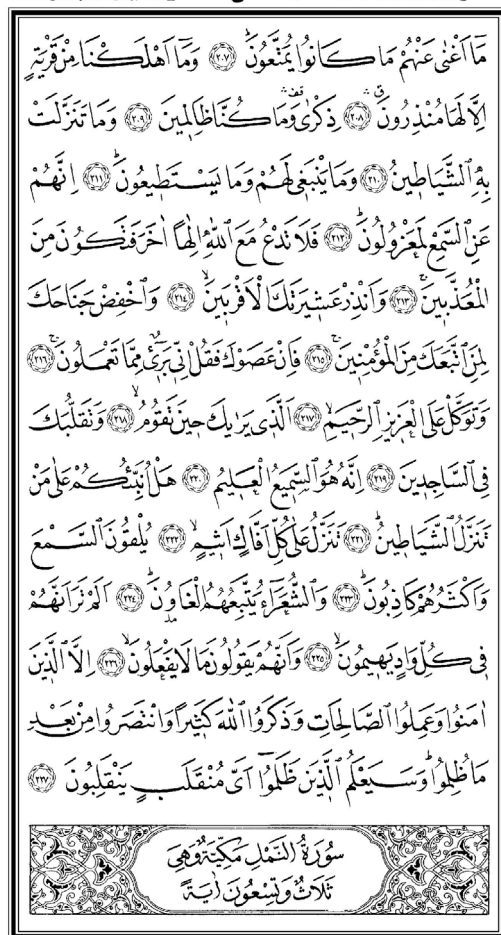 مَٓا اَغْنٰى عَنْهُمْ مَا كَانُوا يُمَتَّعُونَۜ ﴿٢٠٧﴾ وَمَٓا اَهْلَكْنَا مِنْ قَرْيَةٍ
اِلَّا لَهَا مُنْذِرُونَ ﴿٢٠٨﴾ ذِكْرٰى وَمَا كُنَّا ظَالِم۪ينَ ﴿٢٠٩﴾ وَمَا تَنَزَّلَتْ
بِهِ الشَّيَاط۪ينُ ﴿٢١٠﴾ وَمَا يَنْبَغ۪ي لَهُمْ وَمَا يَسْتَط۪يعُونَۜ ﴿٢١١﴾ اِنَّهُمْ
عَنِ السَّمْعِ لَمَعْزُولُونَۜ ﴿٢١٢﴾ فَلَا تَدْعُ مَعَ اللّٰهِ اِلٰهًا اٰخَرَ فَتَكُونَ مِنَ
الْمُعَذَّب۪ينَۚ ﴿٢١٣﴾ وَاَنْذِرْ عَش۪يرَتَكَ الْاَقْرَب۪ينَۙ ﴿٢١٤﴾ وَاخْفِضْ جَنَاحَكَ
لِمَنِ اتَّبَعَكَ مِنَ الْمُؤْمِن۪ينَۚ ﴿٢١٥﴾ فَاِنْ عَصَوْكَ فَقُلْ اِنّ۪ي بَر۪ٓيءٌ مِمَّا تَعْمَلُونَۚ ﴿٢١٦﴾
وَتَوَكَّلْ عَلَى الْعَز۪يزِ الرَّح۪يمِۙ ﴿٢١٧﴾ اَلَّذ۪ي يَرٰيكَ ح۪ينَ تَقُومُۙ ﴿٢١٨﴾ وَتَقَلُّبَكَ
فِي السَّاجِد۪ينَ ﴿٢١٩﴾ اِنَّهُ هُوَ السَّم۪يعُ الْعَل۪يمُ ﴿٢٢٠﴾ هَلْ اُنَبِّئُكُمْ عَلٰى مَنْ
تَنَزَّلُ الشَّيَاط۪ينُۜ ﴿٢٢١﴾ تَنَزَّلُ عَلٰى كُلِّ اَفَّاكٍ اَث۪يمٍۙ ﴿٢٢٢﴾ يُلْقُونَ السَّمْعَ
وَاَكْثَرُهُمْ كَاذِبُونَۜ ﴿٢٢٣﴾ وَالشُّعَرَٓاءُ يَتَّبِعُهُمُ الْغَاوُ۫نَۜ ﴿٢٢٤﴾ اَلَمْ تَرَ اَنَّهُمْ
ف۪ي كُلِّ وَادٍ يَه۪يمُونَۙ ﴿٢٢٥﴾ وَاَنَّهُمْ يَقُولُونَ مَا لَا يَفْعَلُونَۙ ﴿٢٢٦﴾ اِلَّا الَّذ۪ينَ
اٰمَنُوا وَعَمِلُوا الصَّالِحَاتِ وَذَكَرُوا اللّٰهَ كَث۪يرًا وَانْتَصَرُوا مِنْ بَعْدِ
مَا ظُلِمُواۜ وَسَيَعْلَمُ الَّذ۪ينَ ظَلَمُٓوا اَيَّ مُنْقَلَبٍ يَنْقَلِبُونَ ﴿٢٢٧﴾
سُورَةُ النَّمْلِ مَكِّيَّةٌ وَهِيَ
ثَلَاثٌ وَتِسْعُونَ اٰيَةً